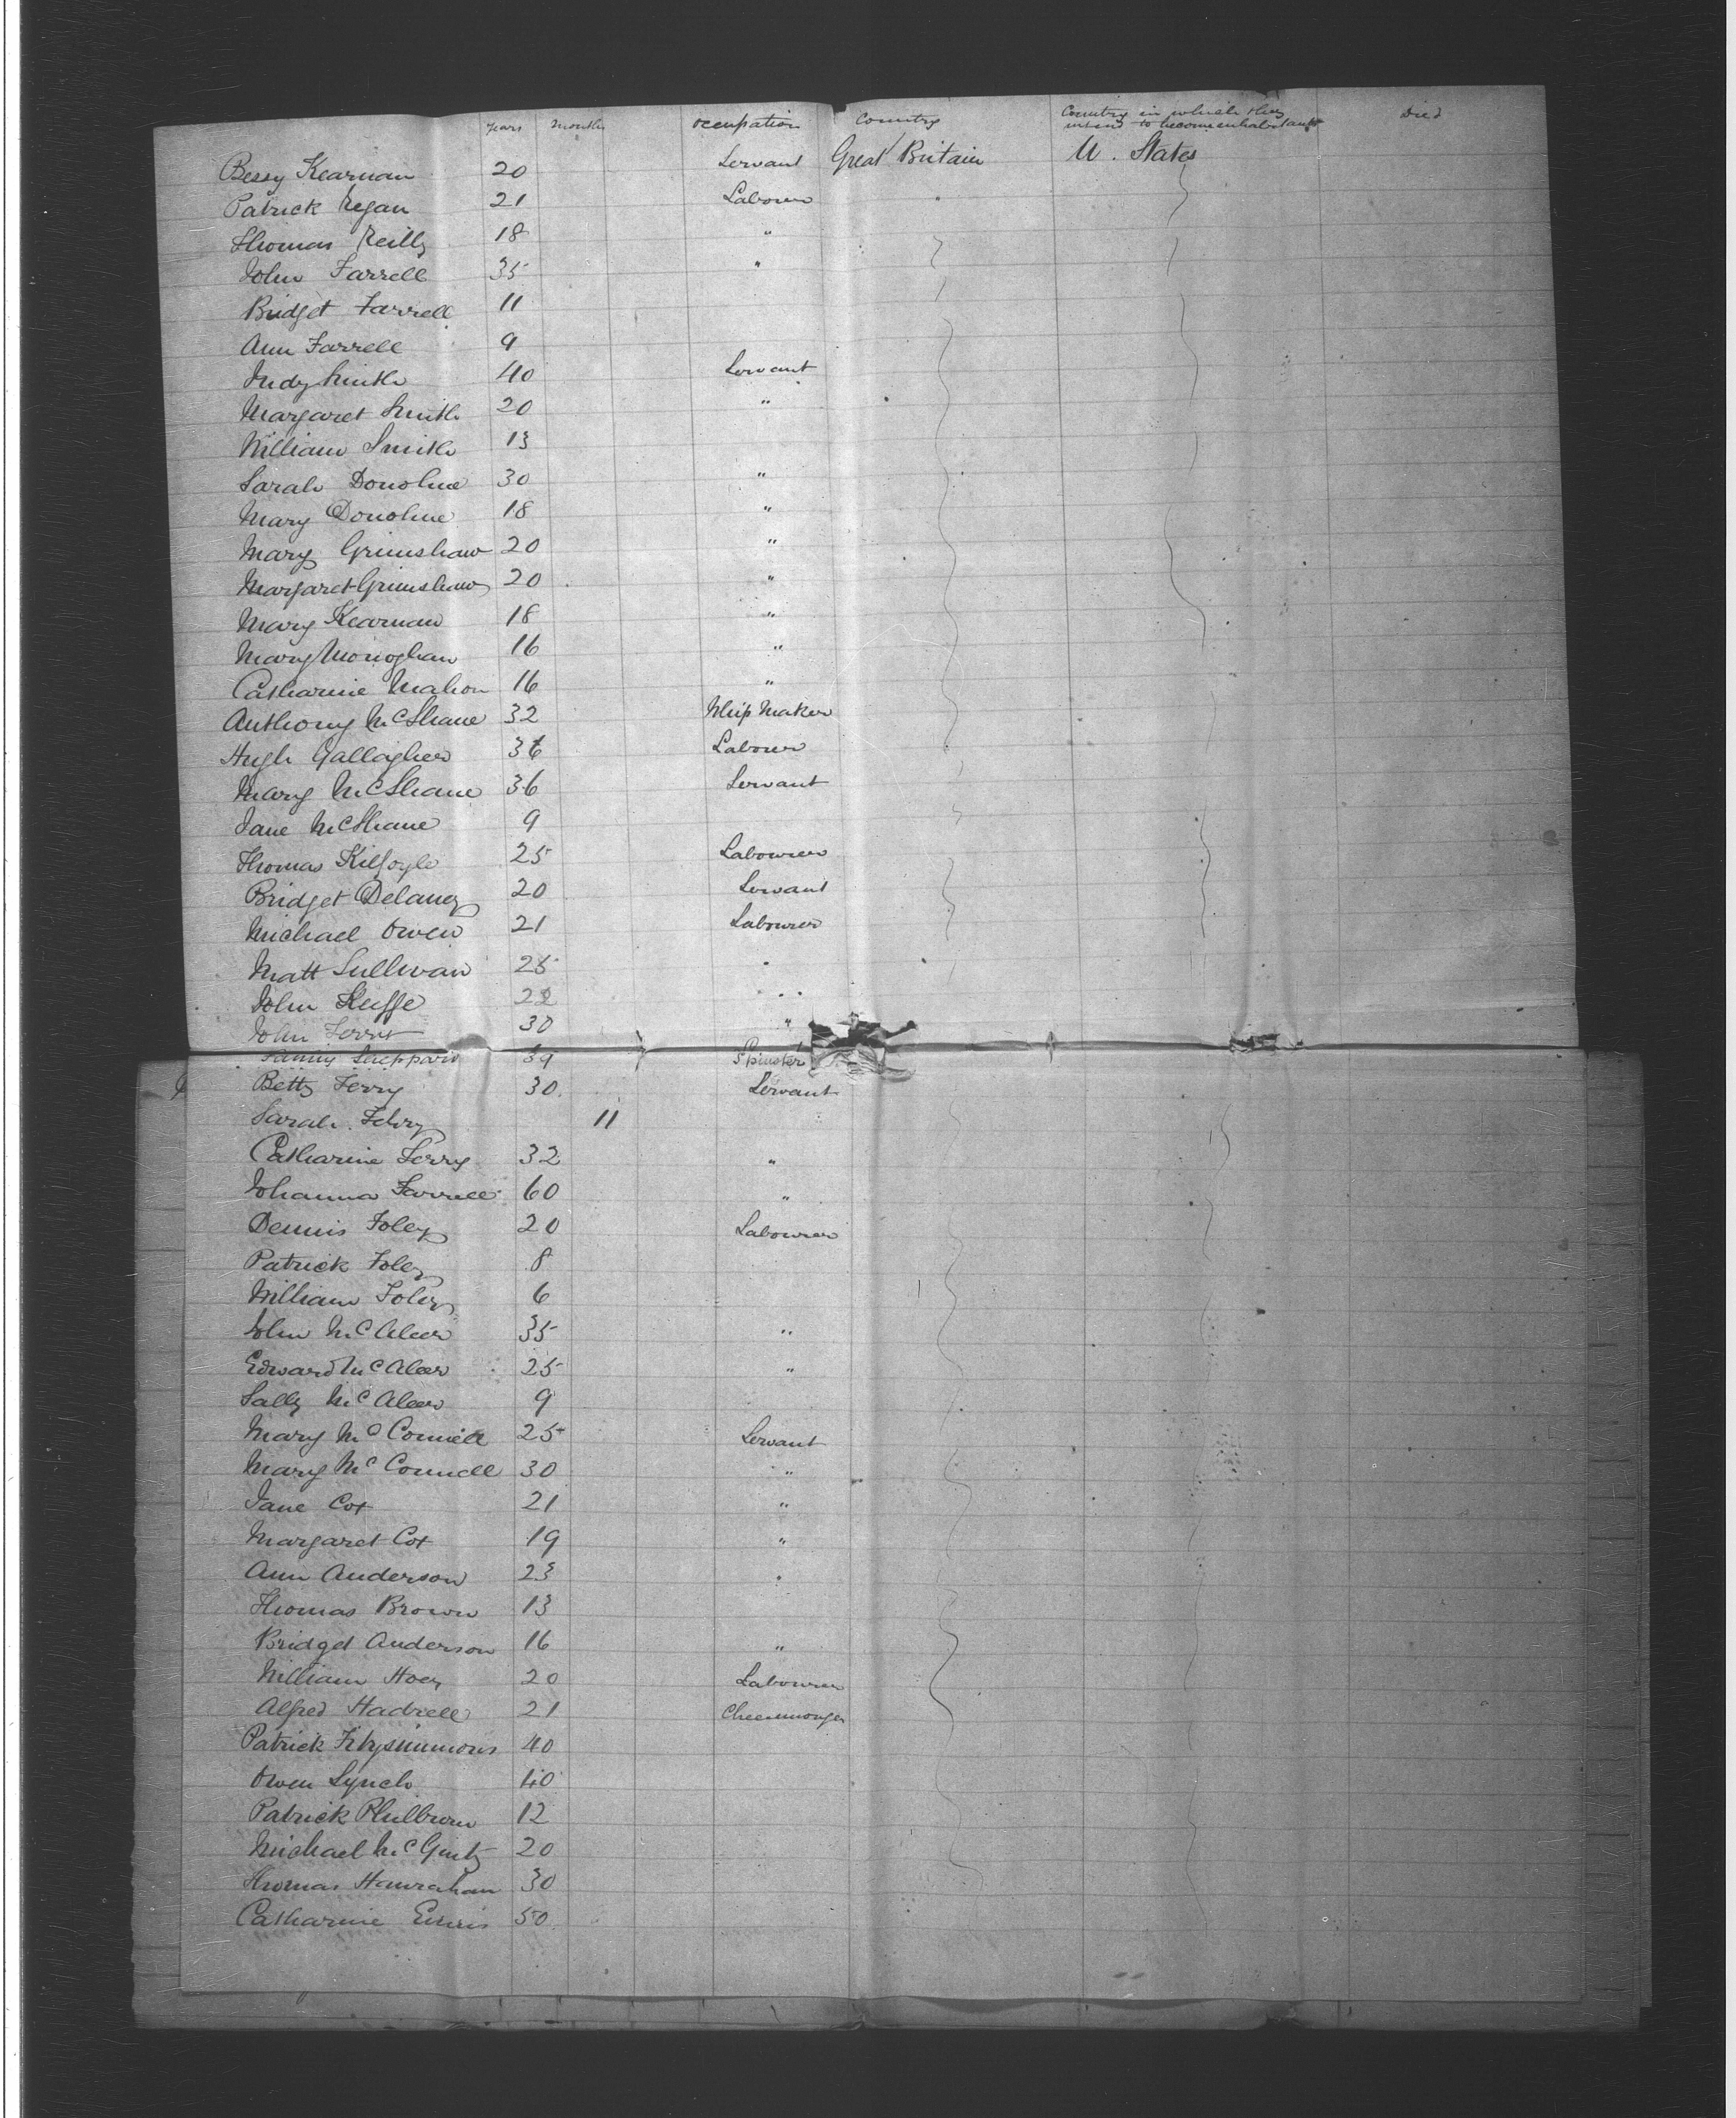 years months occupation country Country in which they intend to become inhabitants Died
Bessy Kearnan 20 Servant Great Britain U. States
Patrick Regan 21 Labourer "
Thomas Reilly 18 "
John Farrell 35 "
Bridget Farrell 11
Ann Farrell 9
Judy Smith 40 Servant
Margaret Smith 20 "
William Smith 13
Sarah Donohue 30 "
Mary Donohue 18 "
Mary Grimshaw 20 "
Margaret Grimshaw 20 "
Mary Kearnan 18 "
Mary Monoghan 16 "
Catharine Mahon 16 "
Anthony McShane 32 Whip Maker
Hugh Gallagher 36 Labourer
Mary McShane 36 Servant
Jane McShane 9
Thomas Kilfoyle 25 Labourer
Bridget Delaney 20 Servant
Michael Owen 21 Labourer
Matt Sullivan 25 "
John Keiffe 22 "
John Ferry 30 "
Fanny 39 Spinster
Betty Ferry 30 Servant
Sarah Ferry 11
Catharine Ferry 32 "
Johanna Farrell 60 "
Dennis Foley 20 Labourer
Patrick Foley 8
William Foley 6
John McAleer 35 "
Edward McAleer 25 "
Sally McAleer 9
Mary McConnell 25 Servant
Mary McConnell 30 "
Jane Cox 21 "
Margaret Cox 19 "
Ann Anderson 23 "
Thomas Brown 13
Bridget Anderson 16 "
William Hoey 20 Labourer
Alfred Hadrell 21 Cheesemonger
Patrick Fitzsimmons 40
Owen Lynch 40
Patrick Philburn 12
Michael McGinty 20
Thomas Hanrahan 30
Catharine Ennis 50